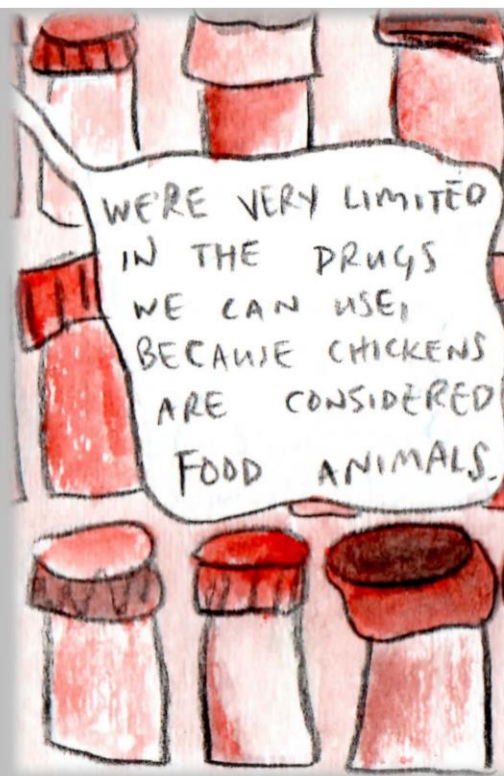 WE'RE VERY LIMITED
IN THE DRUGS
WE CAN USE,
BECAUSE CHICKENS
ARE CONSIDERED
FOOD ANIMALS.